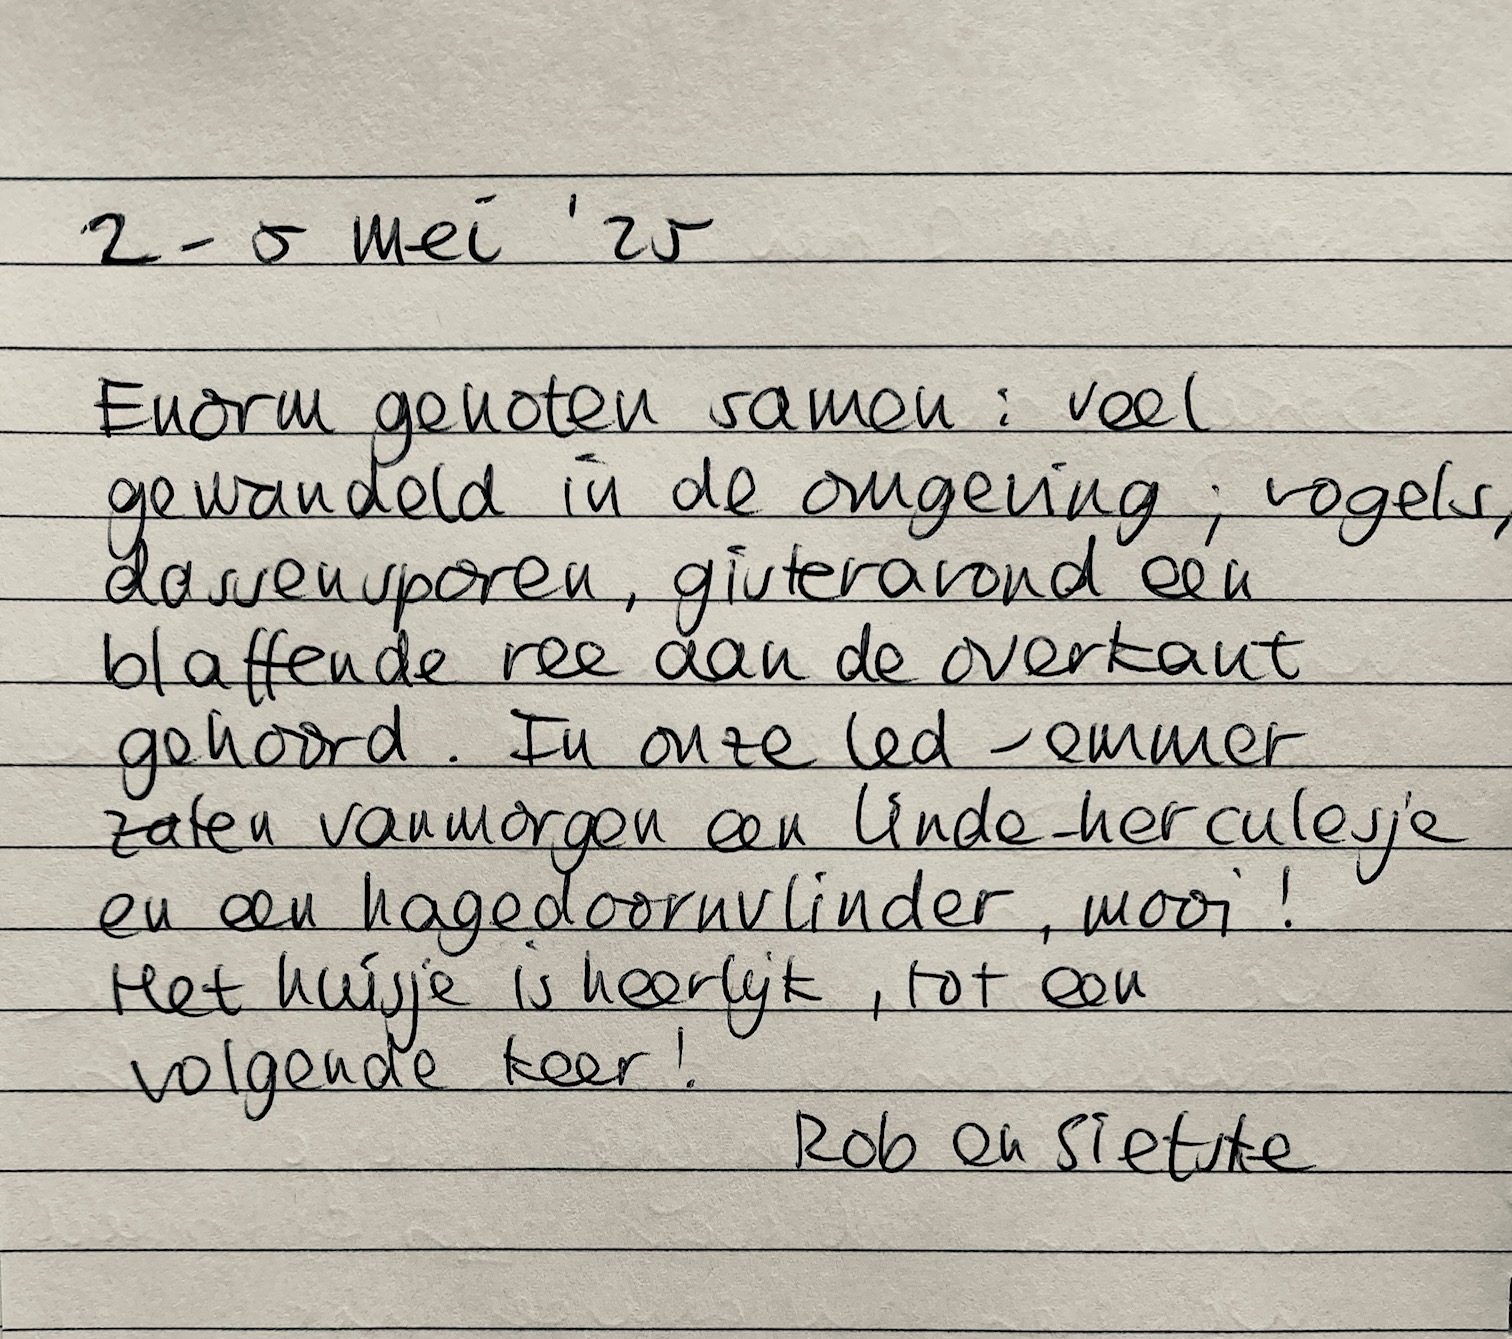 2 - 5 mei '25
Enorm genoten samen : veel
gewandeld in de omgeving ; vogels,
dassensporen, gisteravond een
blaffende ree aan de overkant
gehoord. In onze led - emmer
zaten vanmorgen een linde-herculesje
en een hagedoornvlinder, mooi !
Het huisje is heerlijk, tot een
volgende keer !
Rob en Sietske